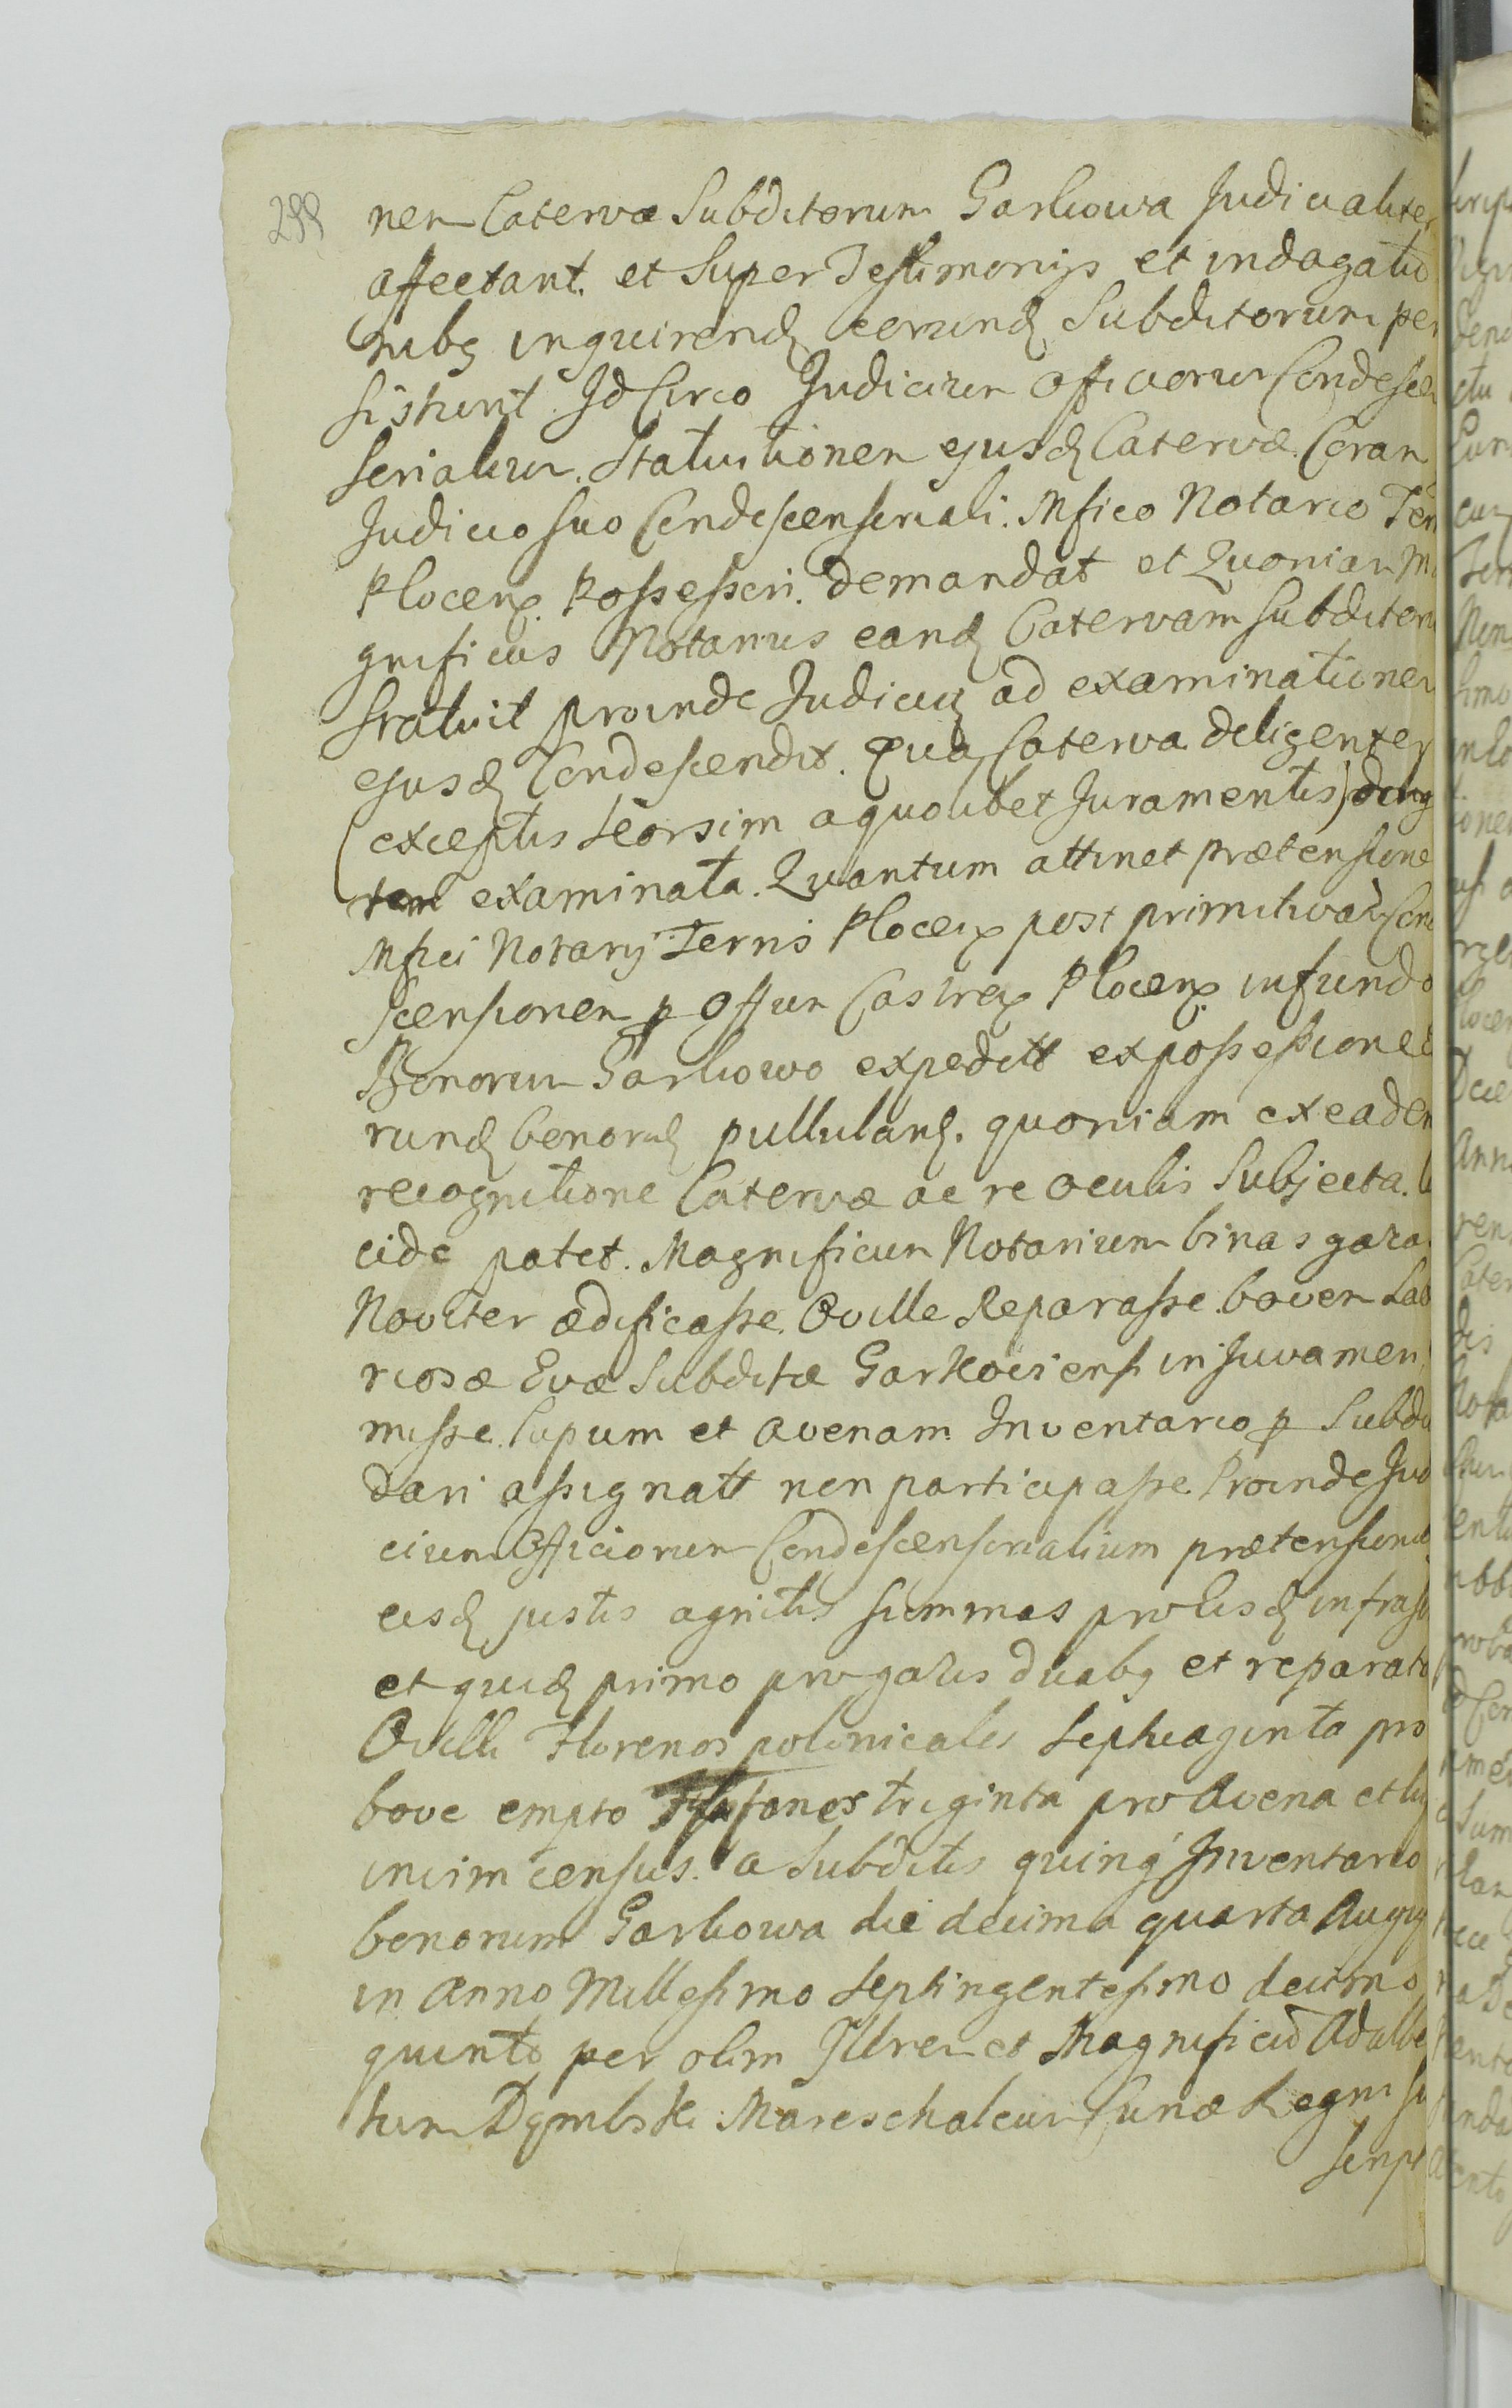 299
nem Catervæ Subditorum Garkowa Judicialiter
affectant. et Super Testimonijs et indagatio
nibq inquirend eorund Subditorum per
sistunt. Id Circo Judicium Officiorum Condescen
serialium. Statuitionem ejusd Catervæ. Coram
Judicio suo Condescenseriali. Mfico Notario Terr
Plocen Possessori. demandat et Quoniam Ma
gnificus Notarius eand Catervam Subditoru
statuit proinde Judiciu ad examinationem
ejusd Condescendit. Qua Caterva deligenter
(exceptis seorsim a quolibet Juramentis)
examinata. Quantum attinet prætensione
Mfici Notarij Terris Plocen post primitivad Con
scensionem p Offum Castren Plocen in fundo
Bonorum Garkowo expeditt ex possessione eo
rund bonorum pullulan. quoniam ex eadem
recognitione Catervæ ac re oculis Subjecta. lu
cide patet. Magnificum Notarium binas gaza
Noviter ædificasse. Oville Reparasse. bovem Lab
riosæ Evæ Subditæ Garkovien in Juvamen
misse. Lupum et avenam Inventario p Subdi
dari assignatt non participasse. Proinde Jud
cium Officiorum Condescenserialium prætensione
eisd justis agnitis summas pro eisd infrasc
et quid primo pro gazis duabq et reparato
Ovilli Florenos polonicales Septuaginta pro
bove empto triginta pro Avena et lu
incim census. a Subditis quinq Inventario
bonorum Garkowa die decima quarta Augus
in Anno Millesimo Septingentesimo decimo
quinto per olim Illrem et Magnificu Adalbe
tum Dąmbski Mareschalcum Curiæ Regni su